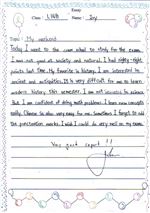 Essay
Class: Name: Joy
Topic: My weekend
Today I went to the cram school to study for the exam.
I was not good at society and natural. I had eighty-eight
points last time. My favorite is history. I am interested in
ancient and antiquities. It is very difficult for me to learn
modern history this semester. I am not interested in science.
But I am confident of doing math problems. I learn new concepts
easily. Chinese is also very easy for me. Sometimes I forget to add
the punctuation marks. I wish I could do very well on my exam.
You just expect!!